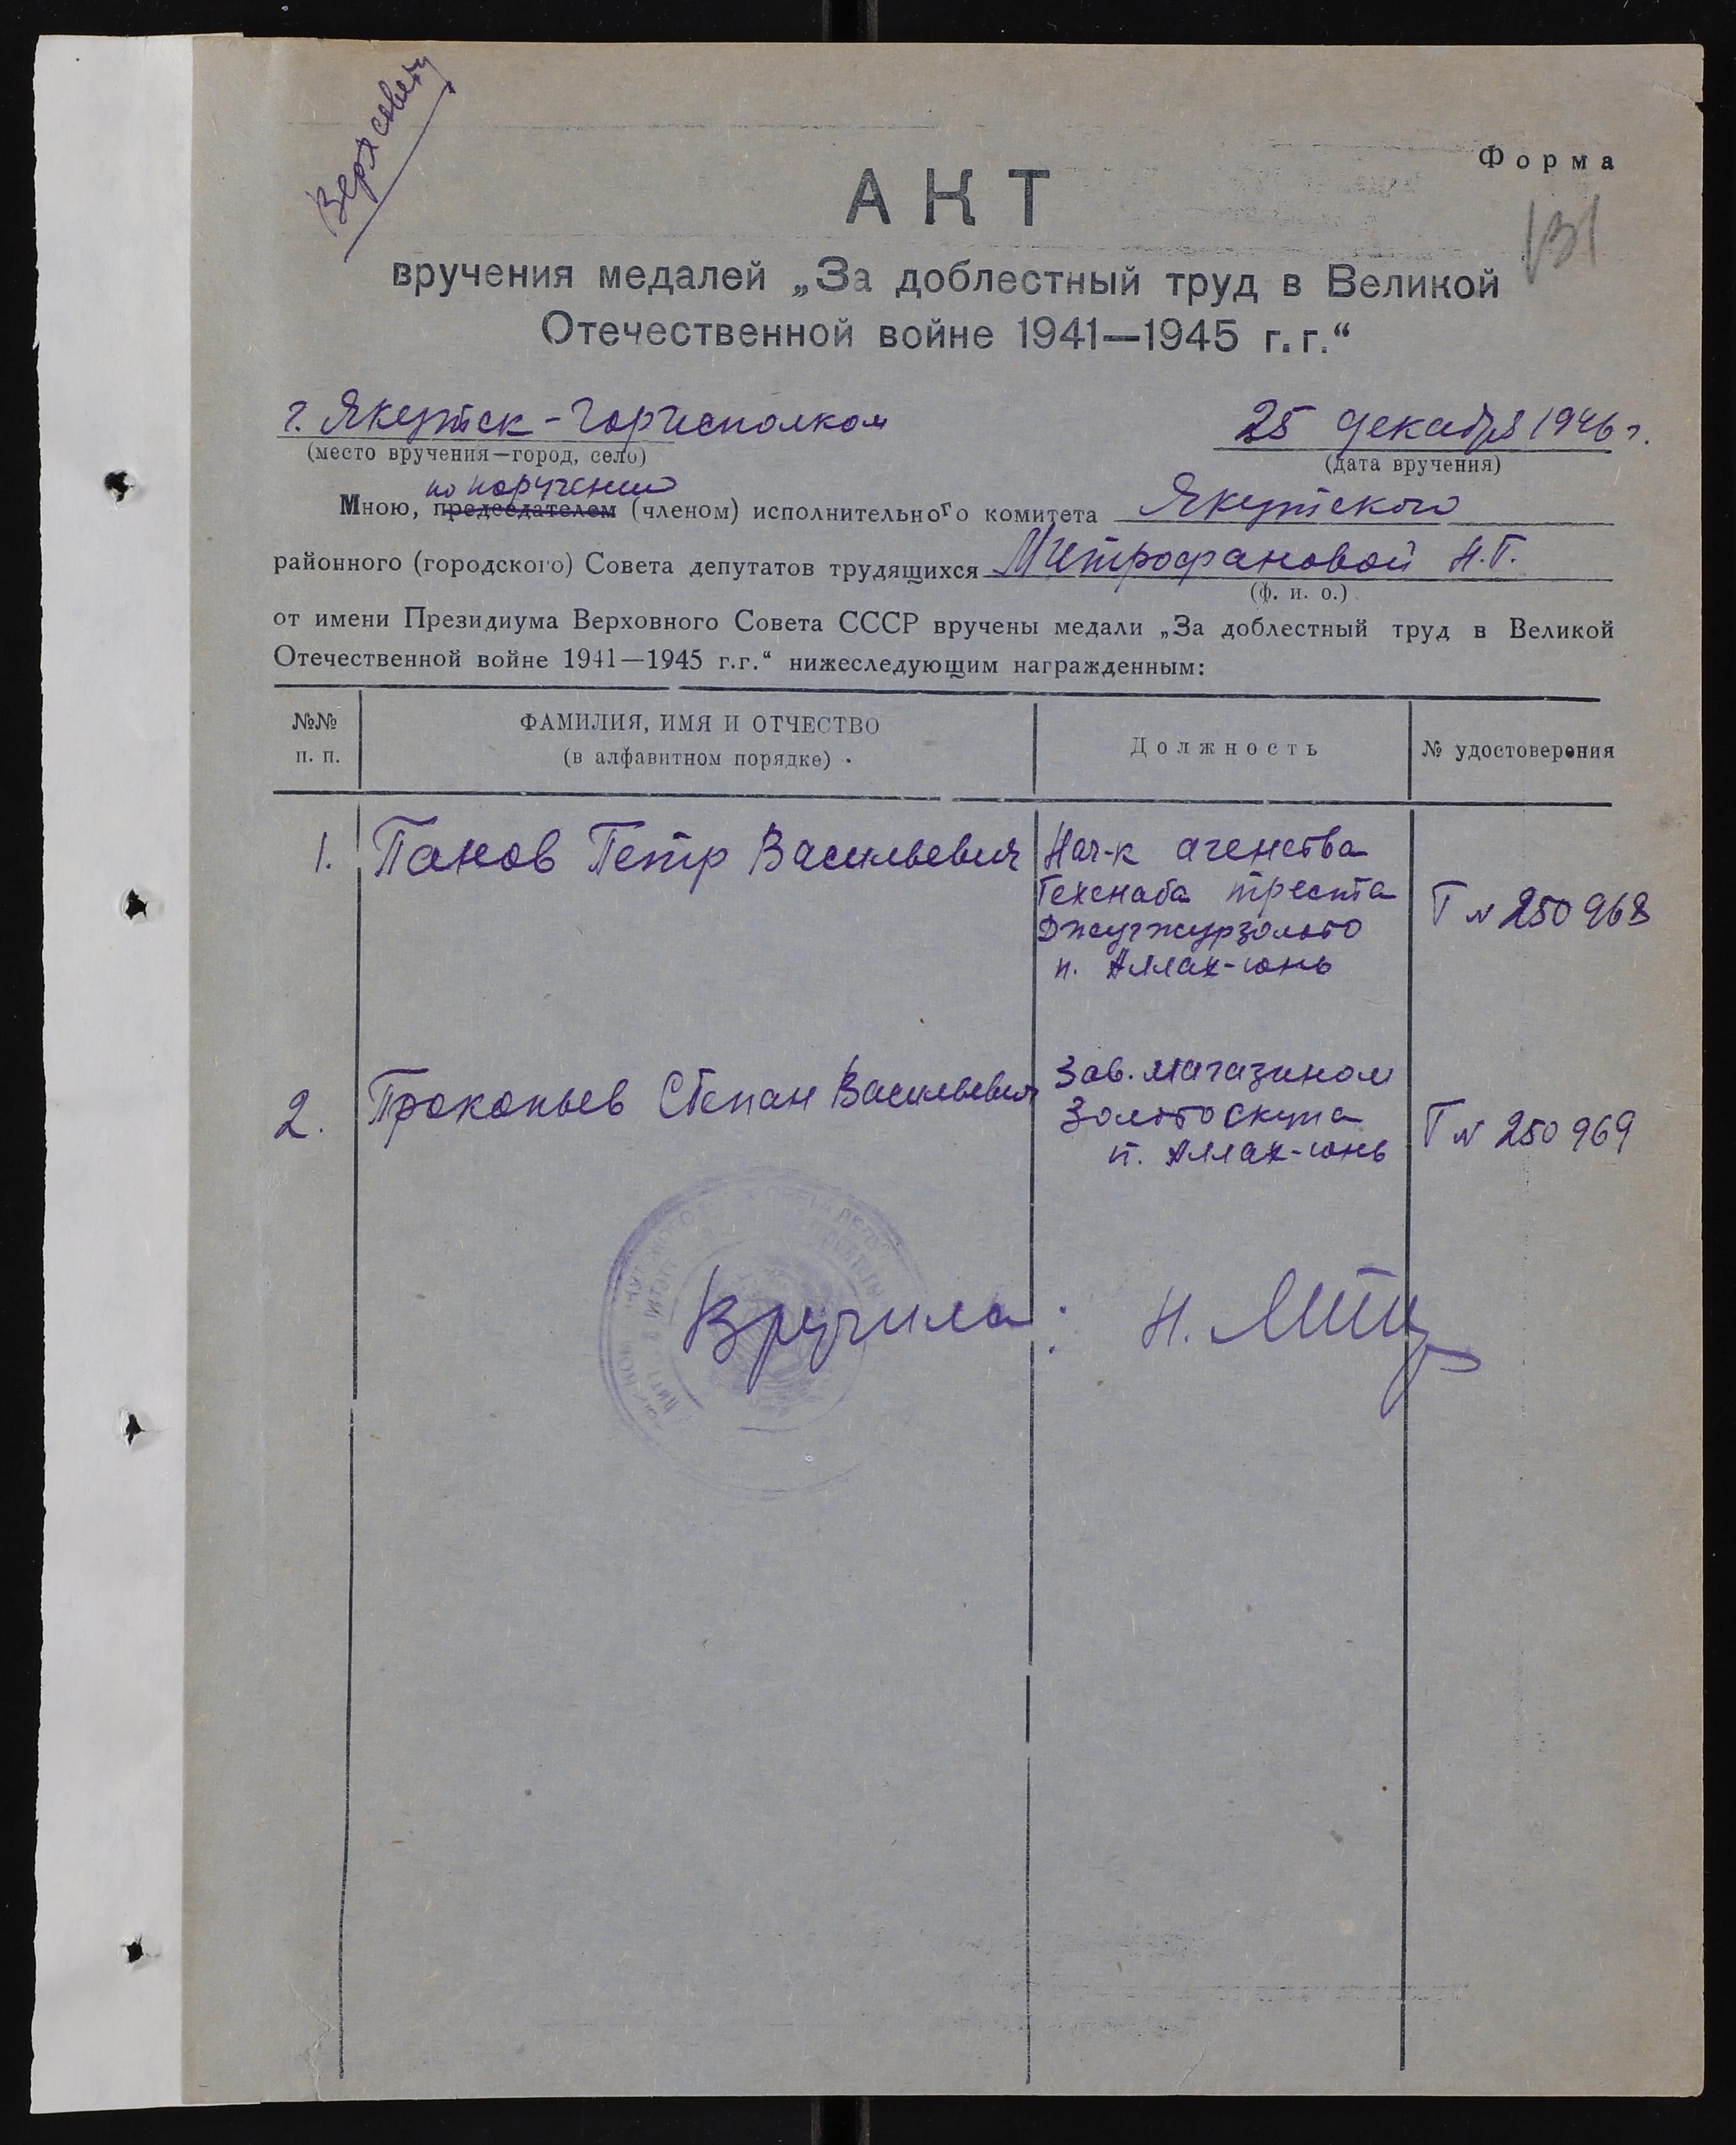 Верхсовет
Форма
АКТ
131
вручения медалей „За доблестный труд в Великой
Отечественной войне 1941—1945 г.г.“
г. Якутск - Горисполком
25 декабря 1946 г.
(место вручения—город, село)
(дата вручения)
по поручению
Мною, председателем (членом) исполнительного комитета Якутского
районного (городского) Совета депутатов трудящихся Митрофановой Н.Г.
(ф. и. о.)
от имени Президиума Верховного Совета СССР вручены медали „За доблестный труд в Великой
Отечественной войне 1941—1945 г.г.“ нижеследующим награжденным:
№№ п. п.
ФАМИЛИЯ, ИМЯ И ОТЧЕСТВО
(в алфавитном порядке)
Должность
№ удостоверения
1. Панов Петр Васильевич
Нач-к агенства
Техснаба треста
Джугжурзолото
п. Аллах-юнь
Т № 250968
2. Прокопьев Степан Васильевич
Зав. магазином
Золотоскупа
п. Аллах-юнь
Т № 250969
Вручила: Н.